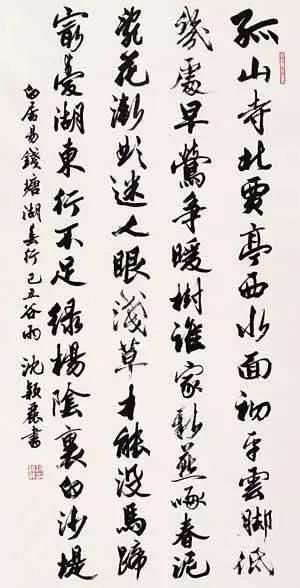 孤山寺北賈亭西水面初平雲脚低
幾處早鶯争暖樹誰家新燕啄春泥
亂花漸欲迷人眼淺草才能没馬蹄
最愛湖東行不足绿楊陰裏白沙堤
白居易錢塘湖春行己丑谷雨沈書